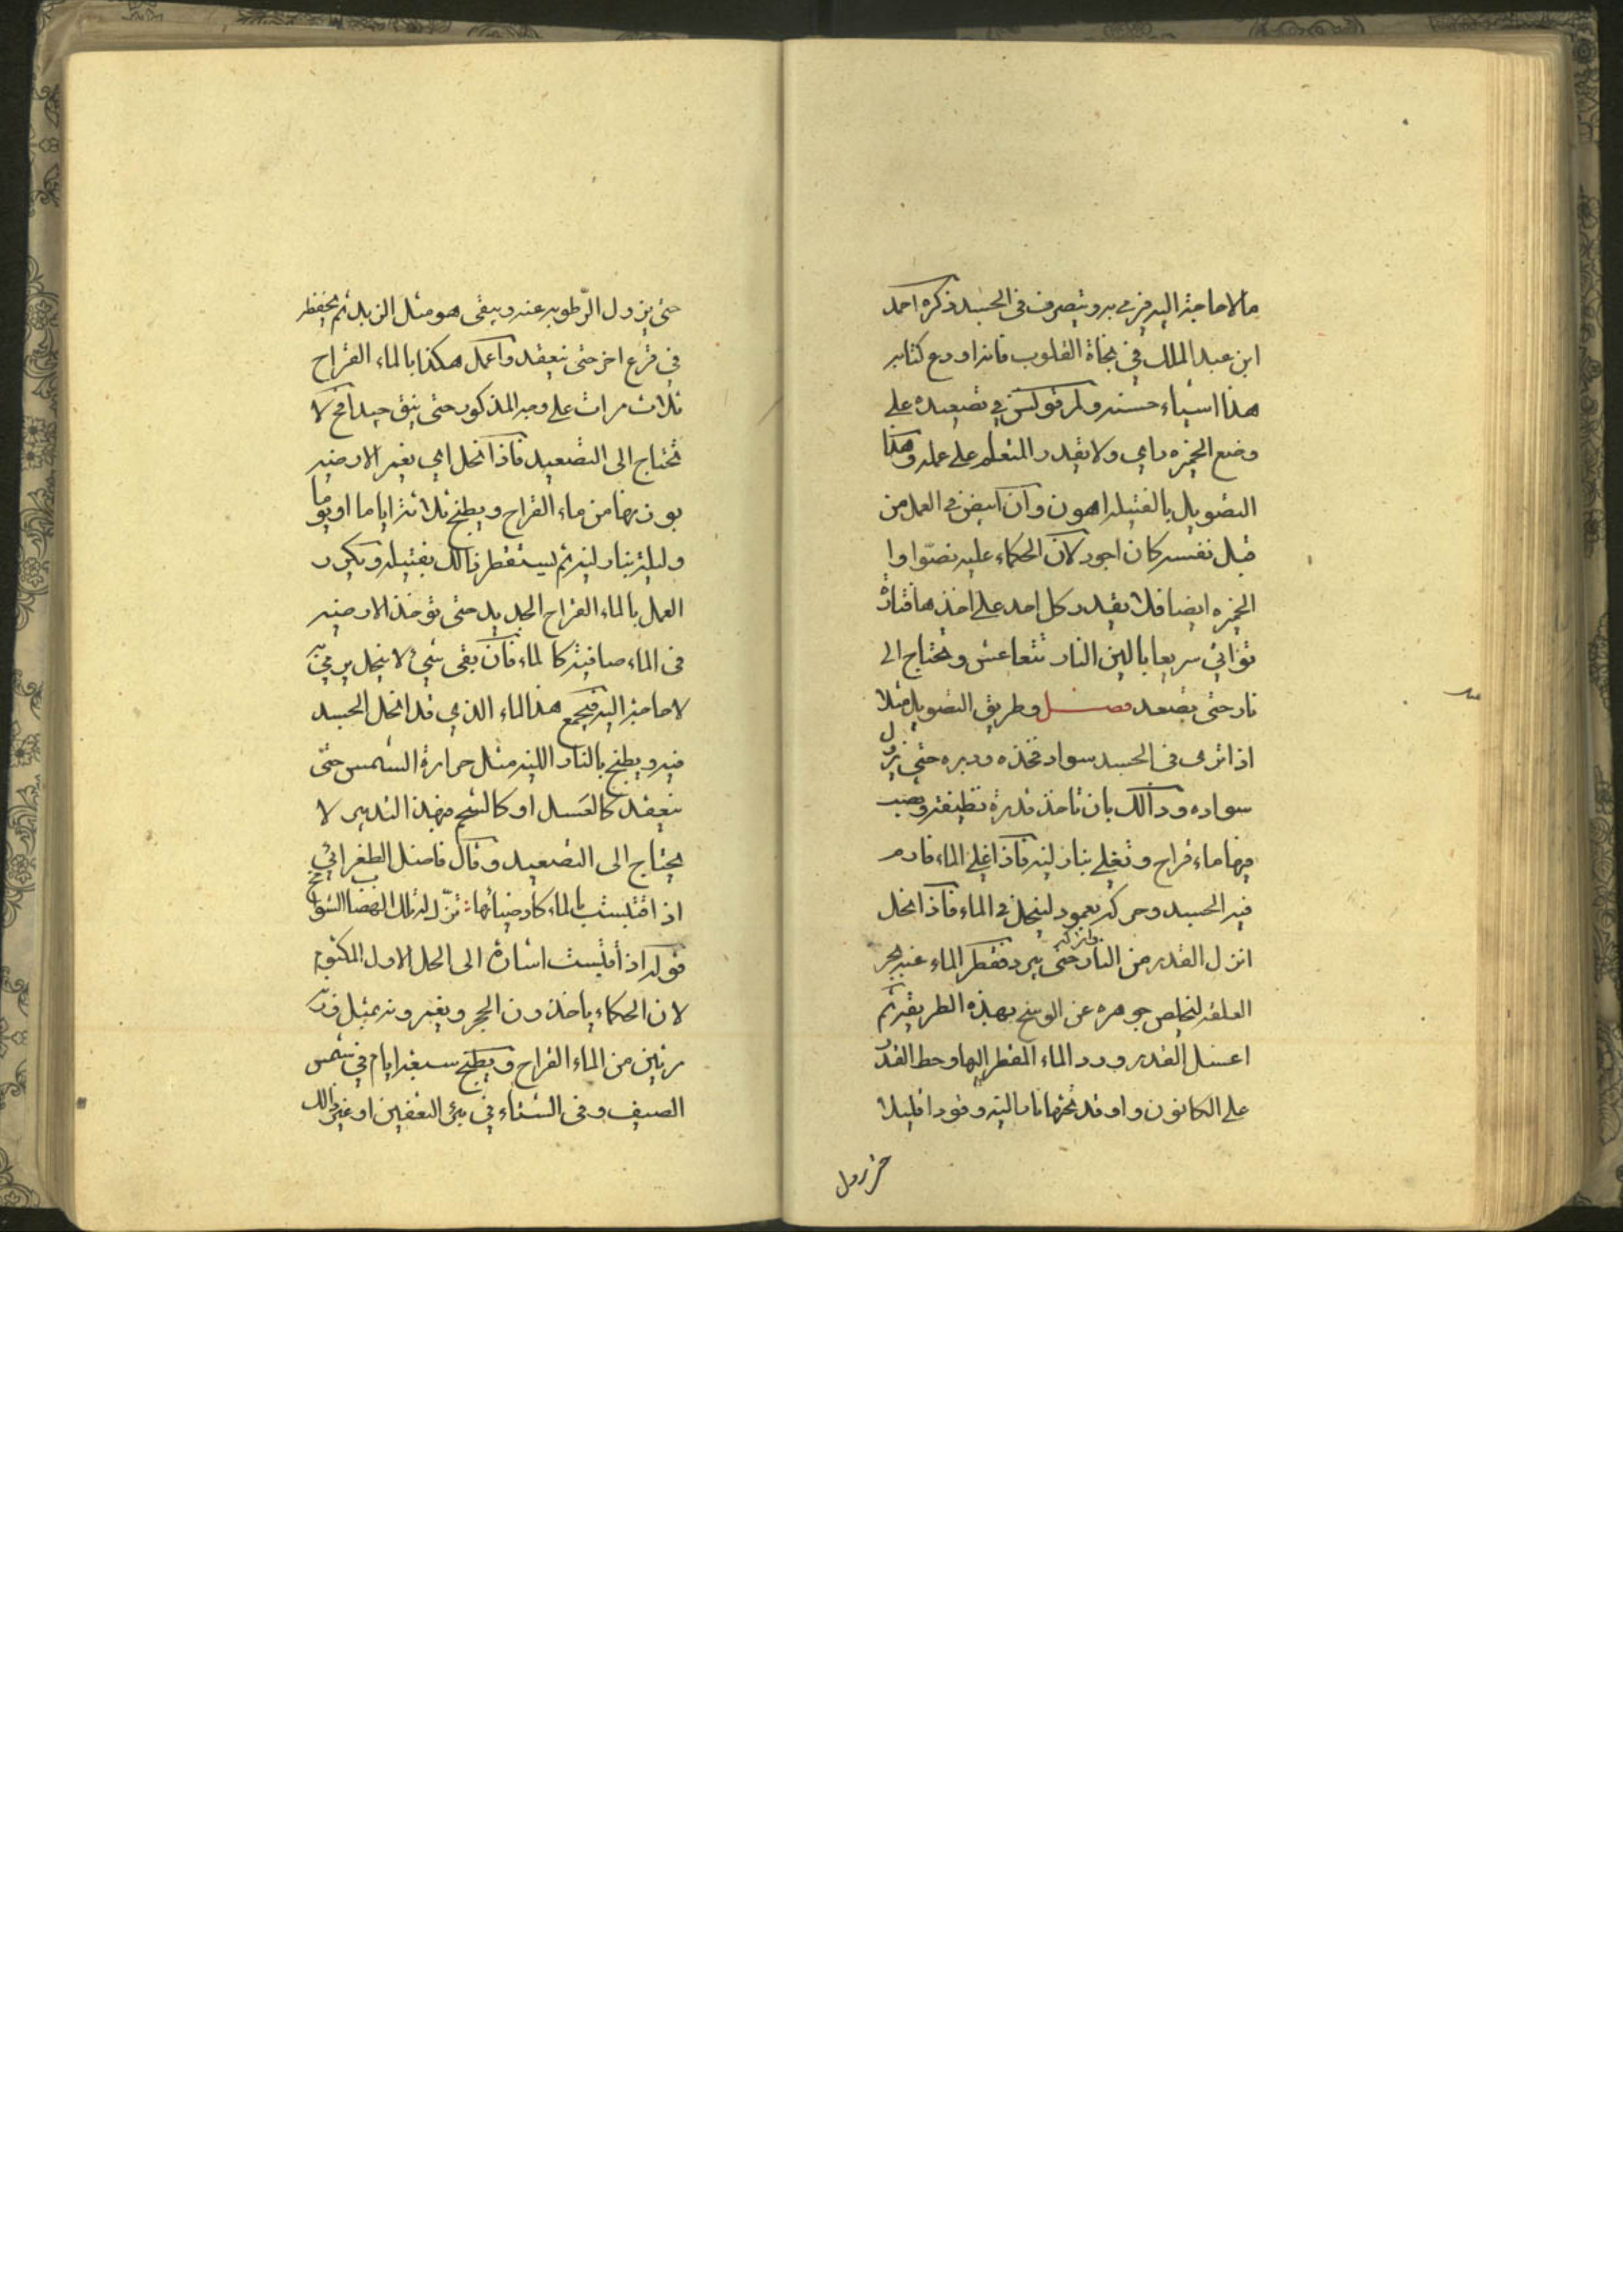 مالا حاجة اليه فيرمى به ويتصرف فى الجسد ذكره احمد
ابن عبد الملك في نجاة القلوب فانه اودع كتابه
هذا اشياء حسنه ولم قولس في تصعيده على
وضع الخيزه داى ولا يقدر المتعلم على عمله وهكذا
التصويل بالفتيله اهون وان ابيض فى العمل من
قبل نفسه كان اجود لان الحكماء عليه نصوا وا
الخيزه ايضا فلا يقدر كل احد على اخذها فتارة
تواتى سريعا بالين النار تتعاعش وتحتاج الى
نار حتى تصعد فصل وطريق التصويل مثلا
اذا ترى فى الجسد سواد فخذه ودبره حتى يزول
سواده وذالك بان تاخذ قدرة نظيفة وتصب
فيها ماء قراح وتغلى بنار لينه فاذا غلى الماء فارم
فيه الجسد وحركه بعمود لينحل فى الماء فاذا انحل
انزل القدر من النار واتركه حتى يبرد فقطر الماء عنه بجر
العلقه ليخلص جوهره عن الوسخ بهذه الطريقة ثم
اغسل القدر ورد الماء المقطر اليها وحط القدر
على الكانون واوقد تحتها نارا لينه وقودا قليلا
حتى يزول
حتى يزول الرطوبه عنه ويبقى هو مثل الزبد ثم يحفظه
في قرع اخر حتى ينعقد واعمل هكذا بالماء القراح
ثلاث مرات على وجه المذكور حتى ينق جيدا فح لا
تحتاج الى التصعيد فاذا انحل اى بغير الارضيه
بوزنها من ماء القراح ويطبخ ثلاثة اياما او يوما
وليلة بنار لينه ثم يستقطر ذالك بفتيله ويكرر
العمل بالماء القراح الجديد حتى تؤخذ الارضيه
فى الماء صافية كالماء فان بقى شئ لا ينحل يرمى به
لا حاجة اليه فيجمع هذا الماء الذي قد انحل الجسد
فيه ويطبخ بالنار اللينه مثل حرارة الشمس حتى
ينعقد كالعسل او كالشحم فبهذا التدبير لا
يحتاج الى التصعيد وقال فاضل الطغرائي
اذ اقتبست بالماء كارضيائها تنزل له تلك الهضاب الشوامخ
قوله اذ أقبست اشارة الى الحل الاول المكتوم
لان الحكماء ياخذون الحجر ويغيرونه بمثل وزنه
مرتين من الماء القراح ويطبخ سبعة ايام في شمس
الصيف وفى الشتاء في بئر التعفين او غير ذالك